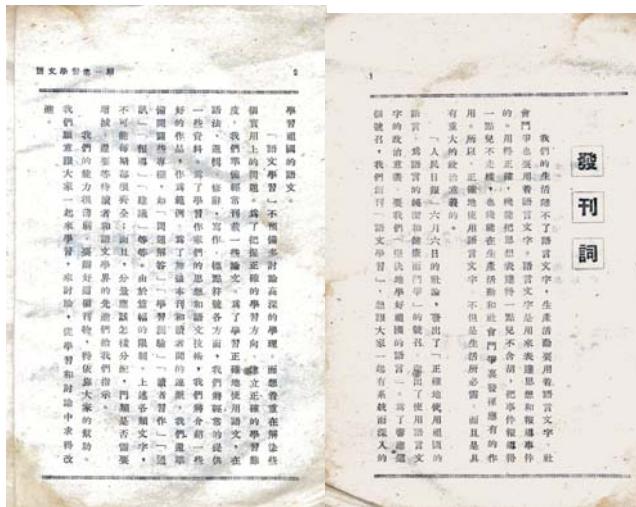 1
發刊詞
我們的生活離不了語言文字，生產活動要用着語言文字，社
會鬥爭也要用着語言文字。語言文字是用來表達思想和報導事件
的，用得正確，纔能把思想表達得一點兒不含胡，把事件報導得
一點兒不走樣，也纔能在生產活動和社會鬥爭裏發揮應有的作
用。所以，正確地使用語言文字，不但是生活所必需，而且是具
有重大的政治意義的。
「人民日報」六月六日的社論，發出了「正確地使用祖國的
語言，爲語言的純潔和健康而鬥爭」的號召，指出了使用語言文
字的政治意義，要我們「堅決地學好祖國的語言」。爲了響應這
個號召，我們創刊「語文學習」，想跟大家一起有系統而深入的
語文學習第一期
2
學習祖國的語文。
「語文學習」不預備多討論高深的學理，而想着重在解決些
個實用上的問題。爲了把握正確的學習方向，建立正確的學習態
度，我們準備經常刊載一些論文。爲了學習正確地使用語文，在
語法，邏輯，修辭，寫作，標點符號各方面，我們將經常的提供
一些資料。爲了學習作家們的思想和語文技術，我們將介紹一些
好的作品，作爲範例。爲了加強本刊和讀者間的連繫，我們還準
備開闢些專欄，如「問題解答」「學習測驗」「讀者習作」「通
訊」「報導」「建議」等等。由於篇幅的限制，上述各類文字，
不可能每期都很齊全；而且，分量應該怎樣分配，門類是否需要
增減，還要等待讀者和語文學界的先進們給我們指示。
我們的能力很薄弱，要辦好這個刊物，得依靠大家的幫助。
我們願意跟大家一起來學習，來討論，從學習和討論中求得改
進。